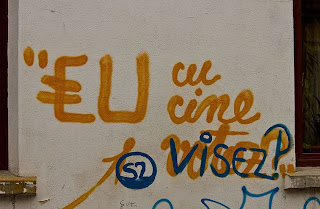 "EU
cu
cine
votez?"
VISEZ?
52